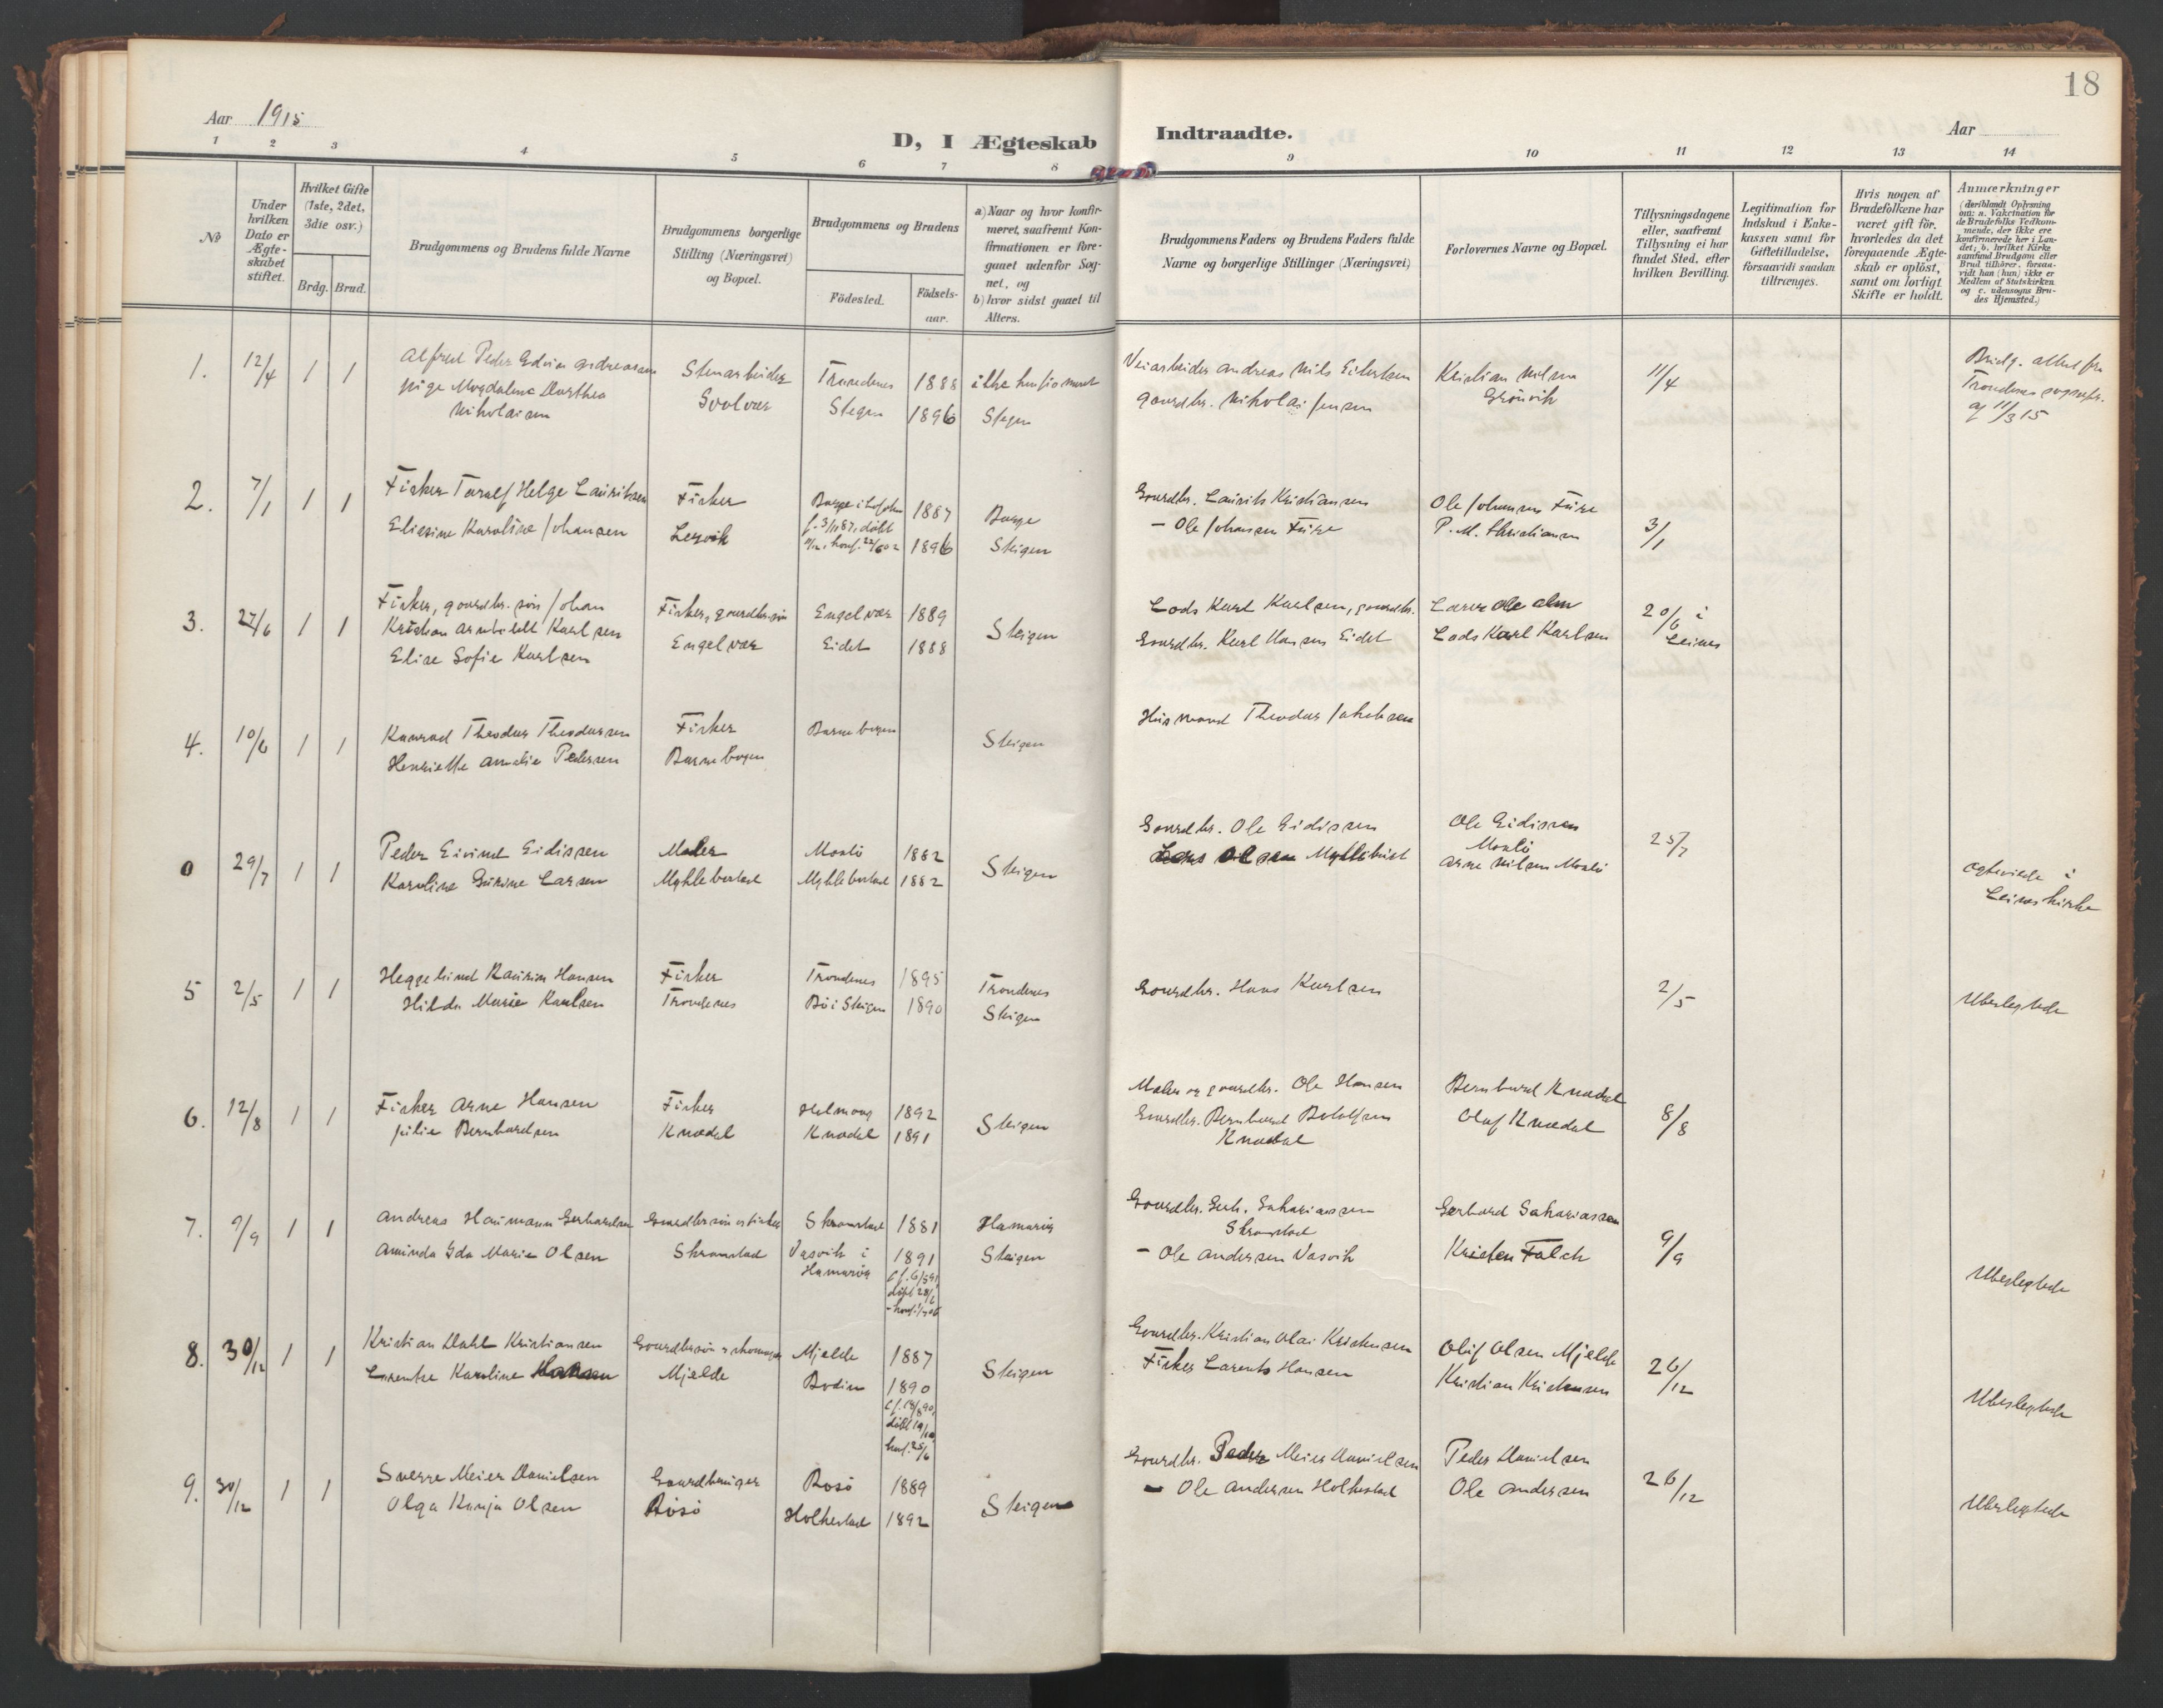 18
Aar 1915
D, I Ægteskab Indtraadte.
Aar
1 2 3 4 5 6 7 8 9 10 11 12 13 14
No
Under hvilken Dato er Ægteskabet stiftet.
Hvilket Gifte (1ste, 2det, 3die osv.)
Brdg. Brud.
Brudgommens og Brudens fulde Navne
Brudgommens borgerlige Stilling (Næringsvei) og Bopæl.
Brudgommens og Brudens
Födested. Födselsaar.
a) Naar og hvor konfirmeret, saafremt Konfirmationen er foregaaet udenfor Sognet, og
b) hvor sidst gaaet til Alters.
Brudgommens Faders og Brudens Faders fulde Navne og borgerlige Stillinger (Næringsvei)
Forlovernes Navne og Bopæl.
Tillysningsdagene eller, saafremt Tillysning ei har fundet Sted, efter hvilken Bevilling.
Legitimation for Indskud i Enkekassen samt for Giftetilladelse, forsaavidt saadan tiltrænges.
Hvis nogen af Brudefolkene har været gift för, hvorledes da det foregaaende Ægteskab er oplöst, samt om lovligt Skifte er holdt.
Anmærkninger
(deriblandt Oplysning om: a. Vakcination for de Brudefolks Vedkommende, der ikke ere konfirmerede her i Landet; b. hvilket Kirkesamfund Brudgom eller Brud tilhörer, forsaavidt han (hun) ikke er Medlem af Statskirken og c. udensogns Brudes Hjemsted.)
1. 12/4 1 1 Alfred Peder Edvin Andreassen Stenarbeider Trondenes 1888 ikke konfirmeret Veiarbeider Andreas Nils Eilertsen Kristian Nilsen 11/4 Brudg. attest fra
pige Magdalena Dorthea Svolvær Stegen 1896 Stegen gaardbr. Nikolai Jensen Grönvik Trondenes sognepr.
Nikolaisen af 11/3 15
2. 7/1 1 1 Fisker Toralf Helge Lauritsen Fisker Borge i Lofoten 1887 Borge Gaardbr. Laurits Kristiansen Ole Johansen Fure 3/1
f. 3/11 87, döbt
Eliesine Karoline Johansen Lervik konf. 1896 Steigen - Ole Johansen Fure P. M. Christiansen
3. 27/6 1 1 Fisker, gaardbr. sön Johan Fisker, gaardbr.sön Engelvær 1889 Steigen Lods Karl Karlsen, gaardbr. Lærer Ole Alm 20/6 i
Kristian Arnholdt Karlsen Engelvær Eidet 1888 Gaardbr. Karl Hansen Eidet Lods Karl Karlsen Leines
Elise Sofie Karlsen
4. 10/6 1 1 Konrad Theodor Theodorsen Fisker Barnebogen Steigen Husmand Theodor Jakobsen
Henriette Amalie Pedersen Barnebogen
0 29/7 1 1 Peder Eivind Eidissen Maler Maalö 1882 Steigen Gaardbr. Ole Eidissen Ole Eidissen 25/7
Maalö
Karoline Gurine Larsen Myklebostad Myklebostad 1882 Lars Olsen Arne Nilsen Maalö Ægteviede i
Leines kirke
5 2/5 1 1 Heggelund Kaurin Hansen Fisker Trondenes 1895 Trondenes Gaardbr. Hans Karlsen 2/5 Ubeslegtede
Hilda Marie Karlsen Trondenes Bö i Steigen 1890 Steigen
6. 12/8 1 1 Fisker Arne Hansen Fisker Helmaag 1892 Steigen Maler og gaardbr. Ole Hansen Bernhard Knædal 8/8
Julie Bernhardsen Knædal Knædal 1891 Gaardbr. Bernhard Botolfsen Olaf Knædal
Knædal
7. 9/9 1 1 Andreas Haumann Gerhardsen Gaardbr.sön og fisker Skramstad 1881 Hamarøy Gaardbr. Gerh. Sakariassen Gerhard Sakariassen 9/9
Skramstad
Aminda Ida Marie Olsen Skramstad Vasvik i 1891 Steigen - Ole Andersen Vasvik Kristen Falch
Hamarøy Ubeslegtede
8. 30/12 1 1 Kristian Dahl Kristiansen Mjelde 1887 Steigen Gaardbr. Kristian Olai Kristensen Oluf Olsen Mjelde 26/12
Larentse Karoline Hansen Mjelde Bodin 1890 Fisker Larents Hansen Kristian Kristensen Ubeslegtede
9. 30/12 1 1 Sverre Meier Danielsen Gaardbruger Rosö 1889 Steigen Gaardbr. Peder Meier Danielsen Peder Danielsen 26/12
Olga Kanja Olsen Rösö Holkestad 1892 - Ole Andersen Holkestad Ole Andersen Ubeslegtede